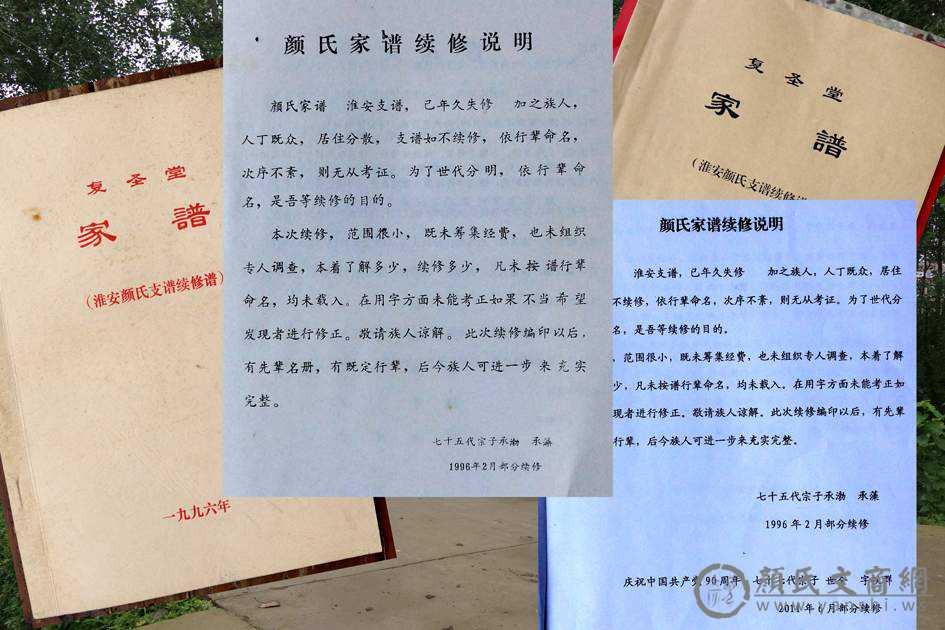 复圣堂
家譜
(淮安颜氏支谱续修谱)
一九九六年
颜氏家谱续修说明
颜氏家谱 淮安支谱，已年久失修 加之族人，
人丁既众，居住分散，支谱如不续修，依行辈命名，
次序不紊，则无从考证。为了世代分明，依行辈命
名，是吾等续修的目的。
本次续修，范围很小，既未筹集经费，也未组织
专人调查，本着了解多少，续修多少，凡未按谱行辈
命名，均未载入。在用字方面未能考正如果不当希望
发现者进行修正。敬请族人谅解。此次续修编印以后，
有先辈名册，有既定行辈，后今族人可进一步来充实
完整。
七十五代宗子承渤 承藻
1996年2月部分续修
复圣堂
家譜
(淮安颜氏支谱续修
颜氏家谱续修说明
淮安支谱，已年久失修 加之族人，人丁既众，居住
不续修，依行辈命名，次序不紊，则无从考证。为了世代分
名，是吾等续修的目的。
，范围很小，既未筹集经费，也未组织专人调查，本着了解
少，凡未按谱行辈命名，均未载入。在用字方面未能考正如
现者进行修正。敬请族人谅解。此次续修编印以后，有先辈
行辈，后今族人可进一步来充实完整。
七十五代宗子承渤 承藻
1996年2月部分续修
庆祝中国共产党90周年 七十七代宗子 世全
2011年6月部分续修
颜氏文商網